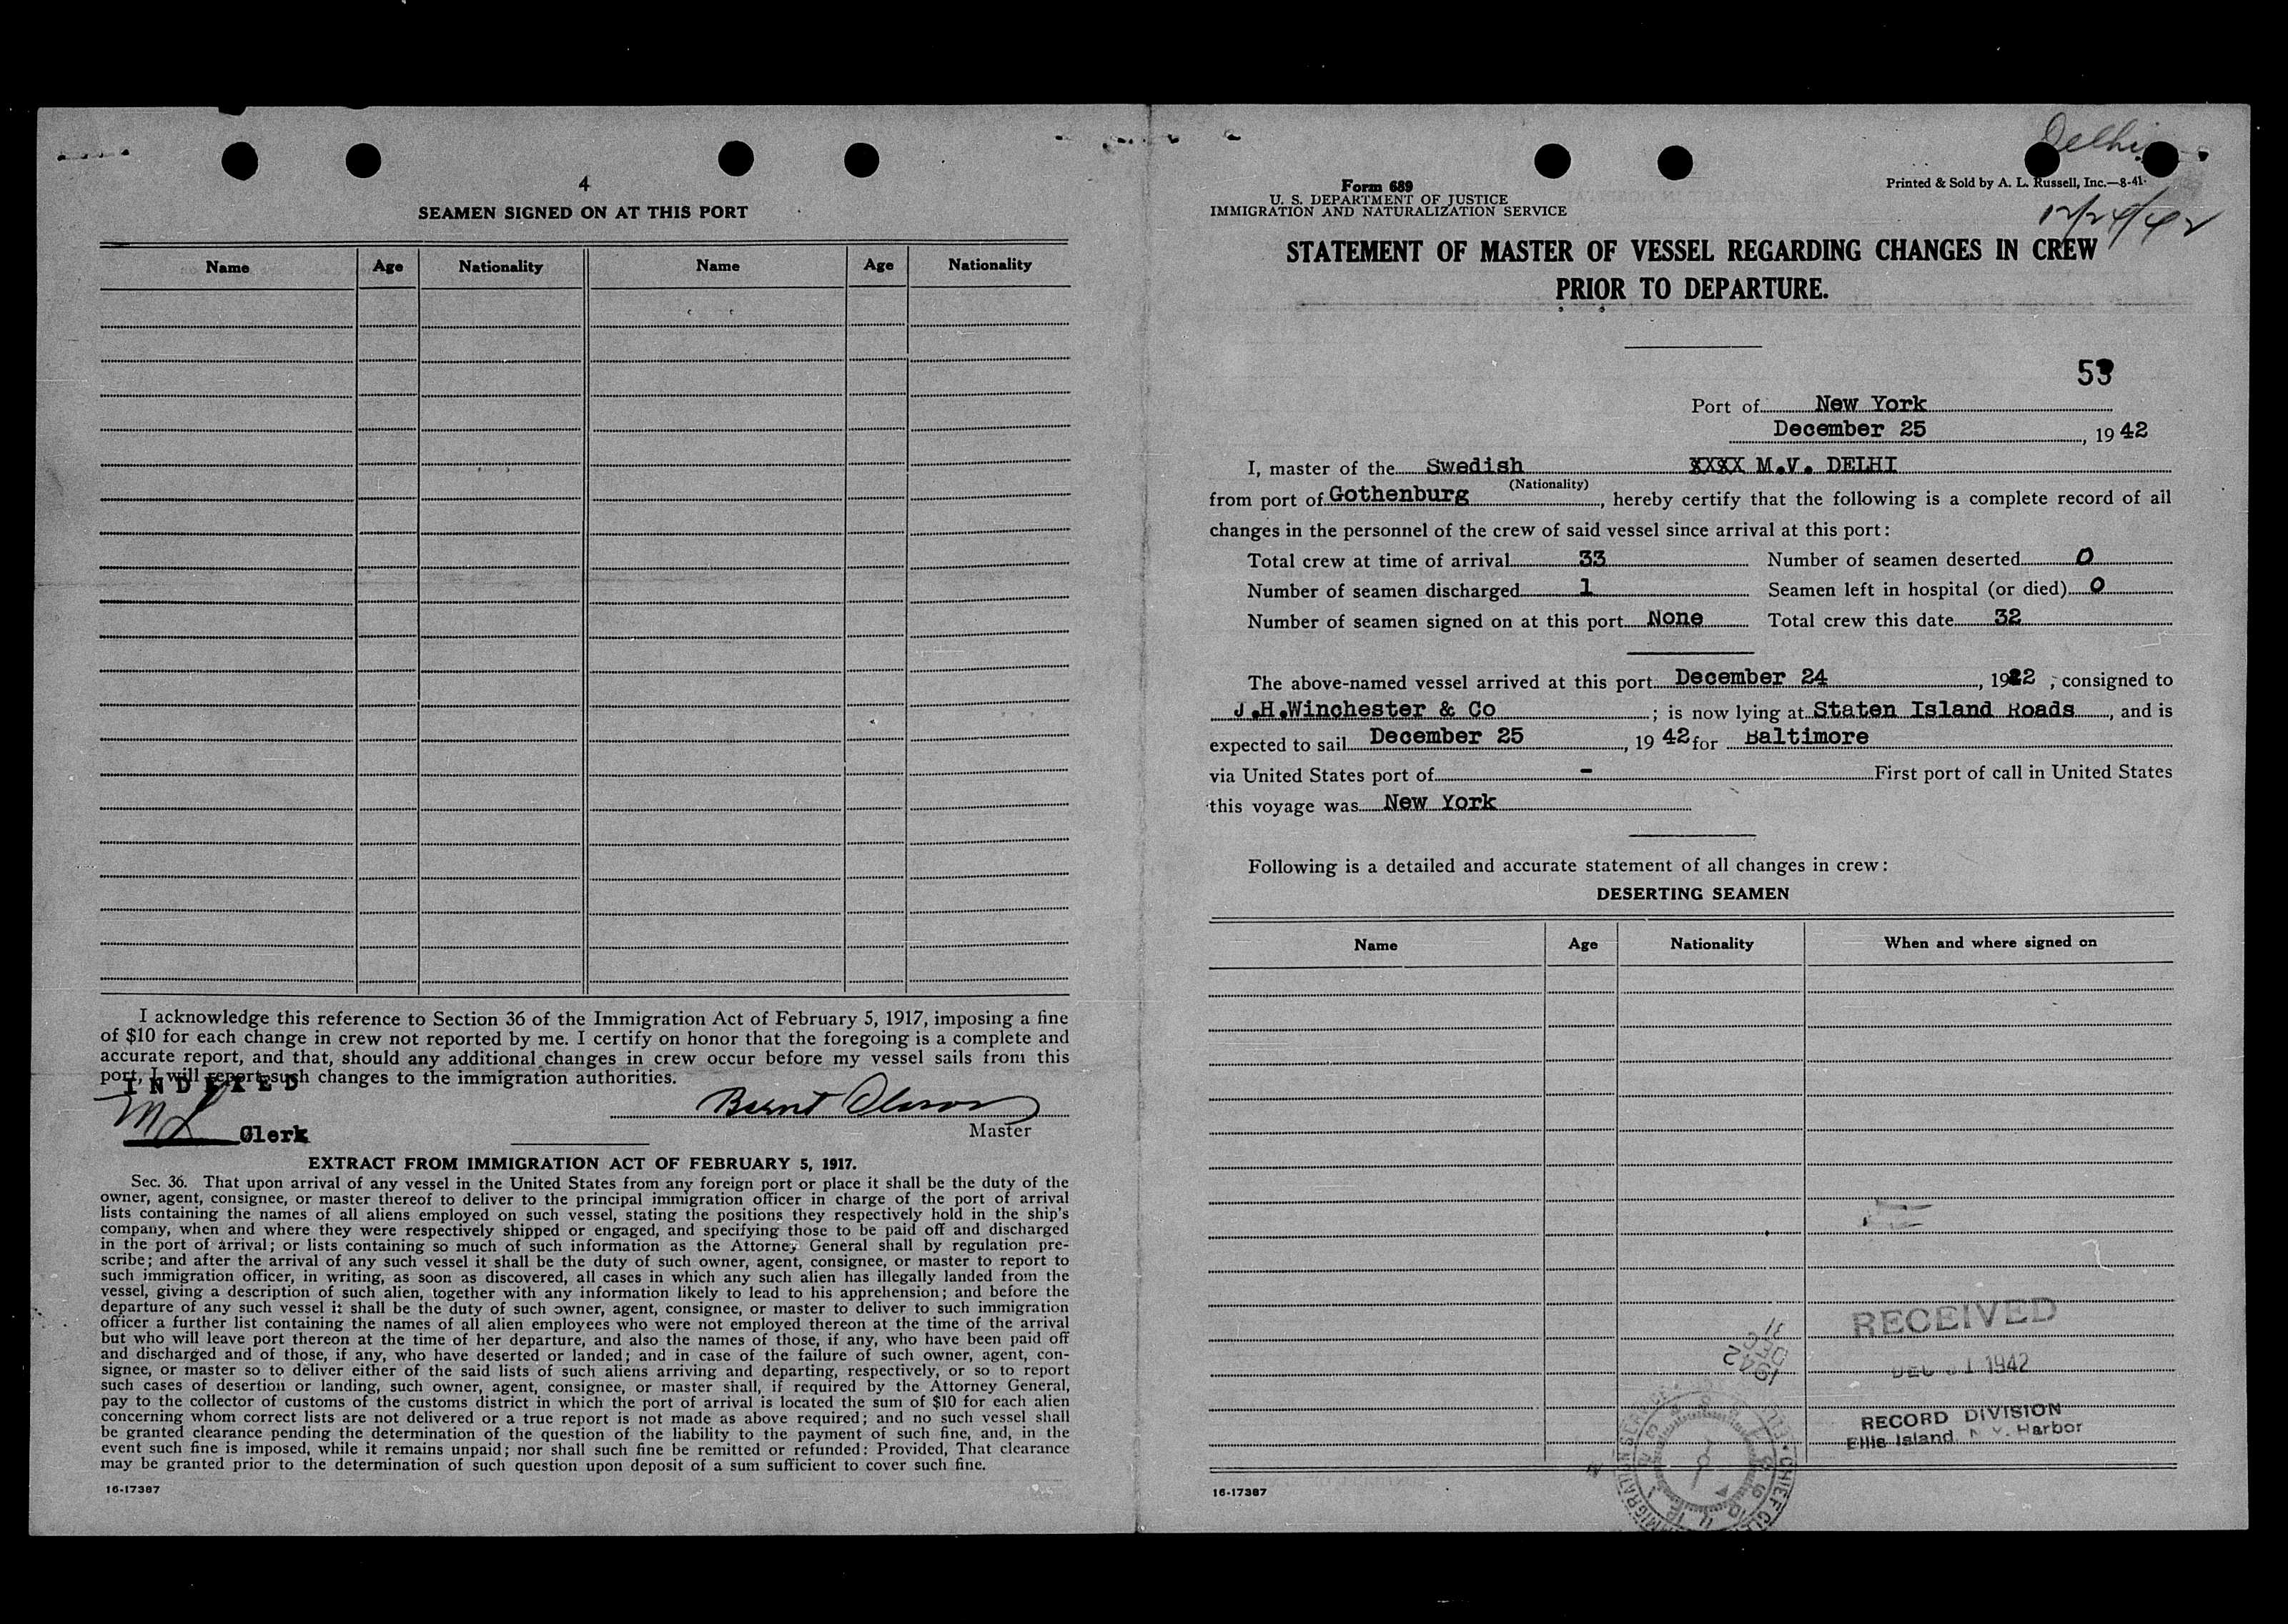 4
SEAMEN SIGNED ON AT THIS PORT
Name Age Nationality Name Age Nationality
I acknowledge this reference to Section 36 of the Immigration Act of February 5, 1917, imposing a fine
of $10 for each change in crew not reported by me. I certify on honor that the foregoing is a complete and
accurate report, and that, should any additional changes in crew occur before my vessel sails from this
port, I will report such changes to the immigration authorities.
INDEXED
Clerk
Master
EXTRACT FROM IMMIGRATION ACT OF FEBRUARY 5, 1917.
Sec. 36. That upon arrival of any vessel in the United States from any foreign port or place it shall be the duty of the
owner, agent, consignee, or master thereof to deliver to the principal immigration officer in charge of the port of arrival
lists containing the names of all aliens employed on such vessel, stating the positions they respectively hold in the ship's
company, when and where they were respectively shipped or engaged, and specifying those to be paid off and discharged
in the port of arrival; or lists containing so much of such information as the Attorney General shall by regulation pre-
scribe; and after the arrival of any such vessel it shall be the duty of such owner, agent, consignee, or master to report to
such immigration officer, in writing, as soon as discovered, all cases in which any such alien has illegally landed from the
vessel, giving a description of such alien, together with any information likely to lead to his apprehension; and before the
departure of any such vessel it shall be the duty of such owner, agent, consignee, or master to deliver to such immigration
officer a further list containing the names of all alien employees who were not employed thereon at the time of the arrival
but who will leave port thereon at the time of her departure, and also the names of those, if any, who have been paid off
and discharged and of those, if any, who have deserted or landed; and in case of the failure of such owner, agent, con-
signee, or master so to deliver either of the said lists of such aliens arriving and departing, respectively, or so to report
such cases of desertion or landing, such owner, agent, consignee, or master shall, if required by the Attorney General,
pay to the collector of customs of the customs district in which the port of arrival is located the sum of $10 for each alien
concerning whom correct lists are not delivered or a true report is not made as above required; and no such vessel shall
be granted clearance pending the determination of the question of the liability to the payment of such fine, and, in the
event such fine is imposed, while it remains unpaid; nor shall such fine be remitted or refunded: Provided, That clearance
may be granted prior to the determination of such question upon deposit of a sum sufficient to cover such fine.
16-17387
Delhi
Form 689
U. S. DEPARTMENT OF JUSTICE
IMMIGRATION AND NATURALIZATION SERVICE
Printed & Sold by A. L. Russell, Inc.—8-41
12/24/42
STATEMENT OF MASTER OF VESSEL REGARDING CHANGES IN CREW
PRIOR TO DEPARTURE.
53
Port of New York
December 25, 1942
I, master of the Swedish XXXX M.V. DELHI
(Nationality)
from port of Gothenburg, hereby certify that the following is a complete record of all
changes in the personnel of the crew of said vessel since arrival at this port:
Total crew at time of arrival 33 Number of seamen deserted 0
Number of seamen discharged 1 Seamen left in hospital (or died) 0
Number of seamen signed on at this port None Total crew this date 32
The above-named vessel arrived at this port December 24, 1942, consigned to
J.H.Winchester & Co; is now lying at Staten Island Roads, and is
expected to sail December 25, 1942 for Baltimore
via United States port of - First port of call in United States
this voyage was New York
Following is a detailed and accurate statement of all changes in crew:
DESERTING SEAMEN
Name Age Nationality When and where signed on
RECEIVED
DEC 31 1942
RECORD DIVISION
Ellis Island, N. Y. Harbor
31
DEC
1942
16-17387